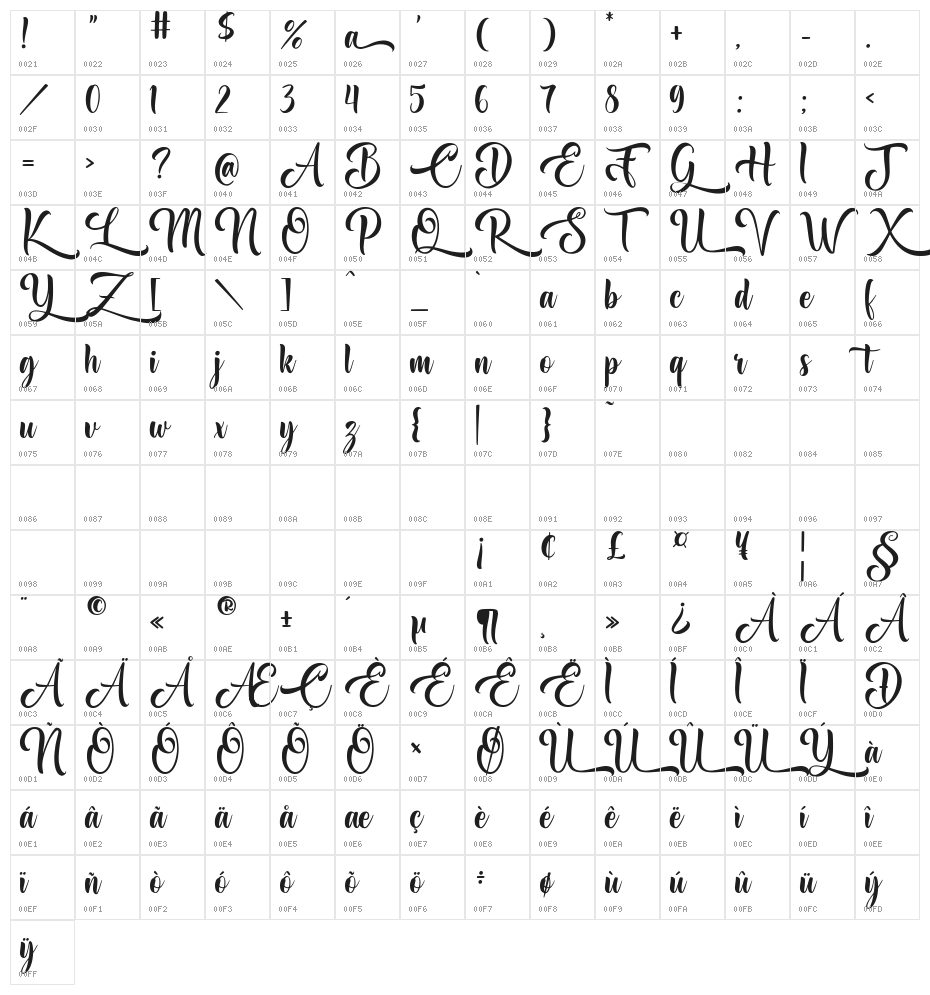 ! " # $ % a ' ( ) * + , - .
0021 0022 0023 0024 0025 0026 0027 0028 0029 002A 002B 002C 002D 002E
/ 0 1 2 3 4 5 6 7 8 9 : ; <
002F 0030 0031 0032 0033 0034 0035 0036 0037 0038 0039 003A 003B 003C
= > ? @ A B C D E F G H I J
003D 003E 003F 0040 0041 0042 0043 0044 0045 0046 0047 0048 0049 004A
K L M N O P Q R S T U V W X
004B 004C 004D 004E 004F 0050 0051 0052 0053 0054 0055 0056 0057 0058
Y Z [ \ ] ^ _ ` a b c d e f
0059 005A 005B 005C 005D 005E 005F 0060 0061 0062 0063 0064 0065 0066
g h i j k l m n o p q r s t
0067 0068 0069 006A 006B 006C 006D 006E 006F 0070 0071 0072 0073 0074
u v w x y z { | } ~
0075 0076 0077 0078 0079 007A 007B 007C 007D 007E 0080 0082 0084 0085
0086 0087 0088 0089 008A 008B 008C 008E 0091 0092 0093 0094 0096 0097
¡ ¢ £ ¤ ¥ ¦ §
0098 0099 009A 009B 009C 009E 009F 00A1 00A2 00A3 00A4 00A5 00A6 00A7
¨ © « ® ± ´ µ ¶ ¸ » ¿ À Á Â
00A8 00A9 00AB 00AE 00B1 00B4 00B5 00B6 00B8 00BB 00BF 00C0 00C1 00C2
Ã Ä Å Æ Ç È É Ê Ë Ì Í Î Ï Ð
00C3 00C4 00C5 00C6 00C7 00C8 00C9 00CA 00CB 00CC 00CD 00CE 00CF 00D0
Ñ Ò Ó Ô Õ Ö × Ø Ù Ú Û Ü Ý à
00D1 00D2 00D3 00D4 00D5 00D6 00D7 00D8 00D9 00DA 00DB 00DC 00DD 00E0
á â ã ä å æ ç è é ê ë ì í î
00E1 00E2 00E3 00E4 00E5 00E6 00E7 00E8 00E9 00EA 00EB 00EC 00ED 00EE
ï ñ ò ó ô õ ö ÷ ø ù ú û ü ý
00EF 00F1 00F2 00F3 00F4 00F5 00F6 00F7 00F8 00F9 00FA 00FB 00FC 00FD
ÿ
00FF